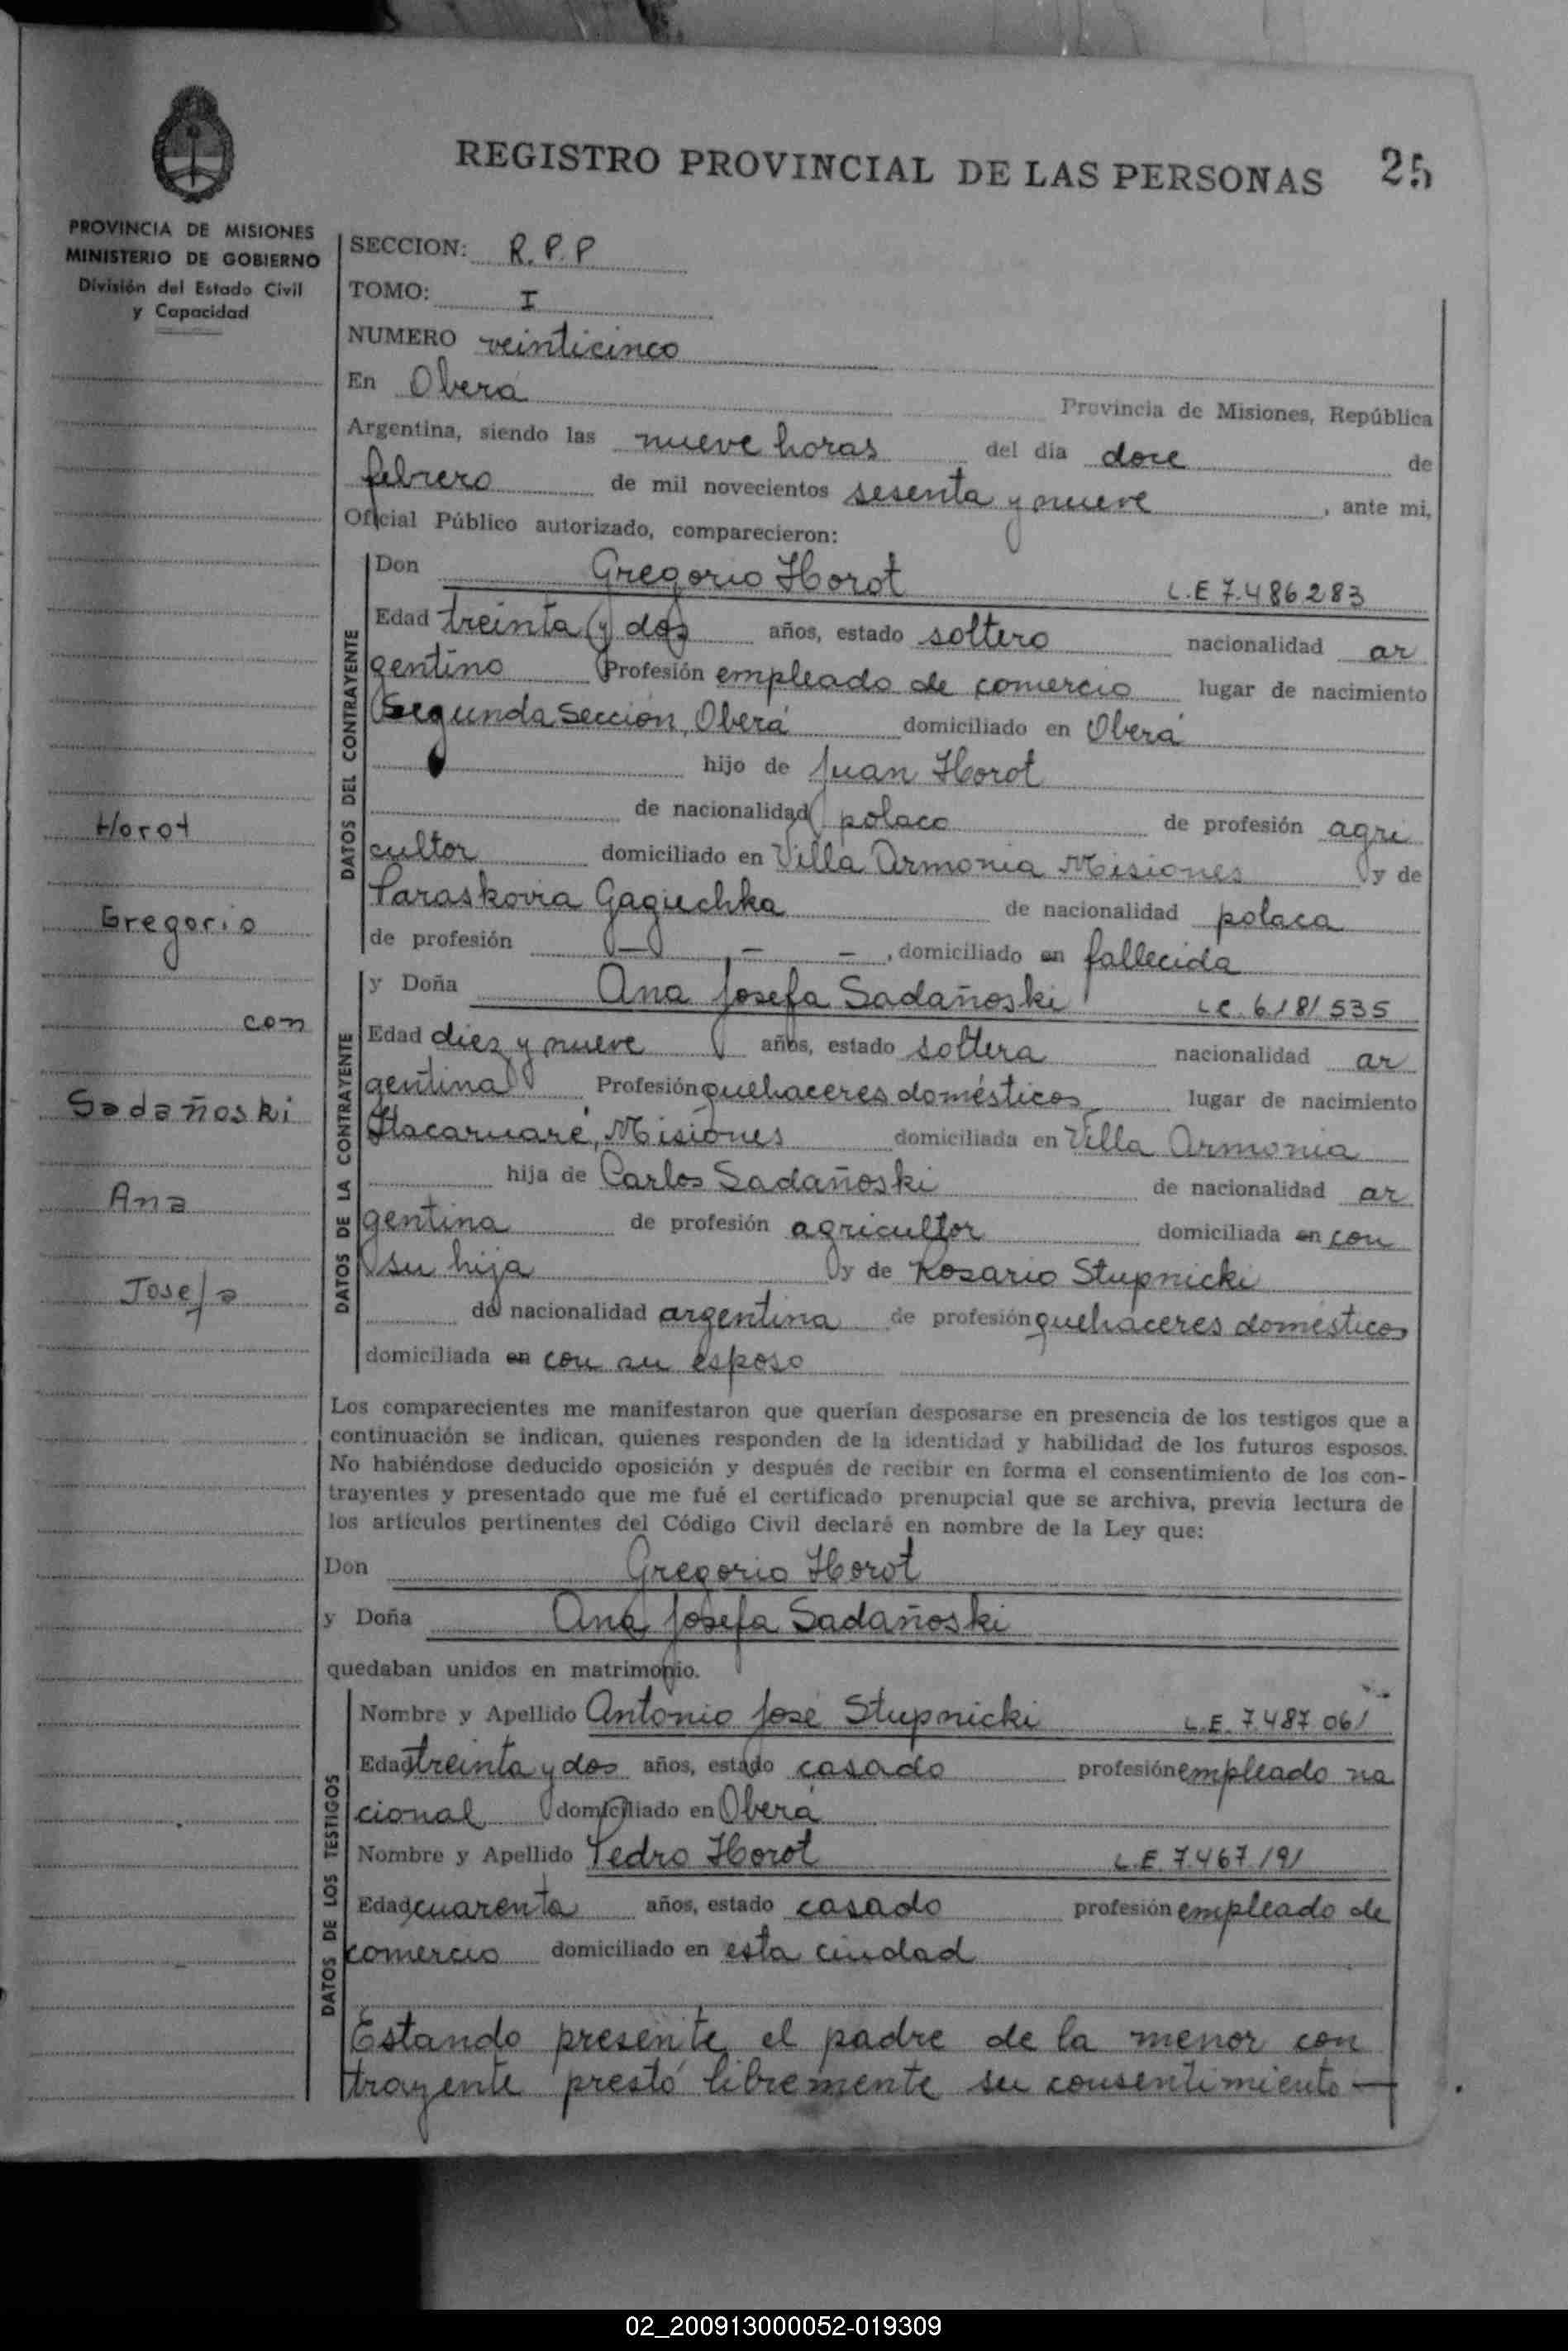 REGISTRO PROVINCIAL DE LAS PERSONAS 25
PROVINCIA DE MISIONES
MINISTERIO DE GOBIERNO
División del Estado Civil
y Capacidad
Horot
Gregorio
con
Sadañoski
Ana
Josefa
SECCION: R.P.P
TOMO: I
NUMERO veinticinco
En Oberá Provincia de Misiones, República
Argentina, siendo las nueve horas del día doce de
febrero de mil novecientos sesenta y nueve, ante mi,
Oficial Público autorizado, comparecieron:
DATOS DEL CONTRAYENTE
Don Gregorio Horot L.E 7.486283
Edad treinta y dos años, estado soltero nacionalidad ar
gentino Profesión empleado de comercio lugar de nacimiento
Segunda Sección, Oberá domiciliado en Oberá
hijo de Juan Horot
de nacionalidad polaco de profesión agri
cultor domiciliado en Villa Armonia Misiones y de
Paraskovia Gaguchka de nacionalidad polaca
de profesión — — —, domiciliado en fallecida
DATOS DE LA CONTRAYENTE
y Doña Ana Josefa Sadañoski LC. 6.181.535
Edad diez y nueve años, estado soltera nacionalidad ar
gentina Profesión quehaceres domésticos lugar de nacimiento
Itacaruaré, Misiones domiciliada en Villa Armonia
hija de Carlos Sadañoski de nacionalidad ar
gentina de profesión agricultor domiciliada en con
su hija y de Rosario Stupnicki
de nacionalidad argentina de profesión quehaceres domésticos
domiciliada en con su esposo
Los comparecientes me manifestaron que querían desposarse en presencia de los testigos que a
continuación se indican, quienes responden de la identidad y habilidad de los futuros esposos.
No habiéndose deducido oposición y después de recibir en forma el consentimiento de los con-
trayentes y presentado que me fué el certificado prenupcial que se archiva, previa lectura de
los artículos pertinentes del Código Civil declaré en nombre de la Ley que:
Don Gregorio Horot
y Doña Ana Josefa Sadañoski
quedaban unidos en matrimonio.
DATOS DE LOS TESTIGOS
Nombre y Apellido Antonio José Stupnicki L.E. 7.487 061
Edad treinta y dos años, estado casado profesión empleado na
cional domiciliado en Oberá
Nombre y Apellido Pedro Horot L.E. 7.467 191
Edad cuarenta años, estado casado profesión empleado de
comercio domiciliado en esta ciudad
Estando presente el padre de la menor con
trayente prestó libremente su consentimiento —
02_200913000052-019309